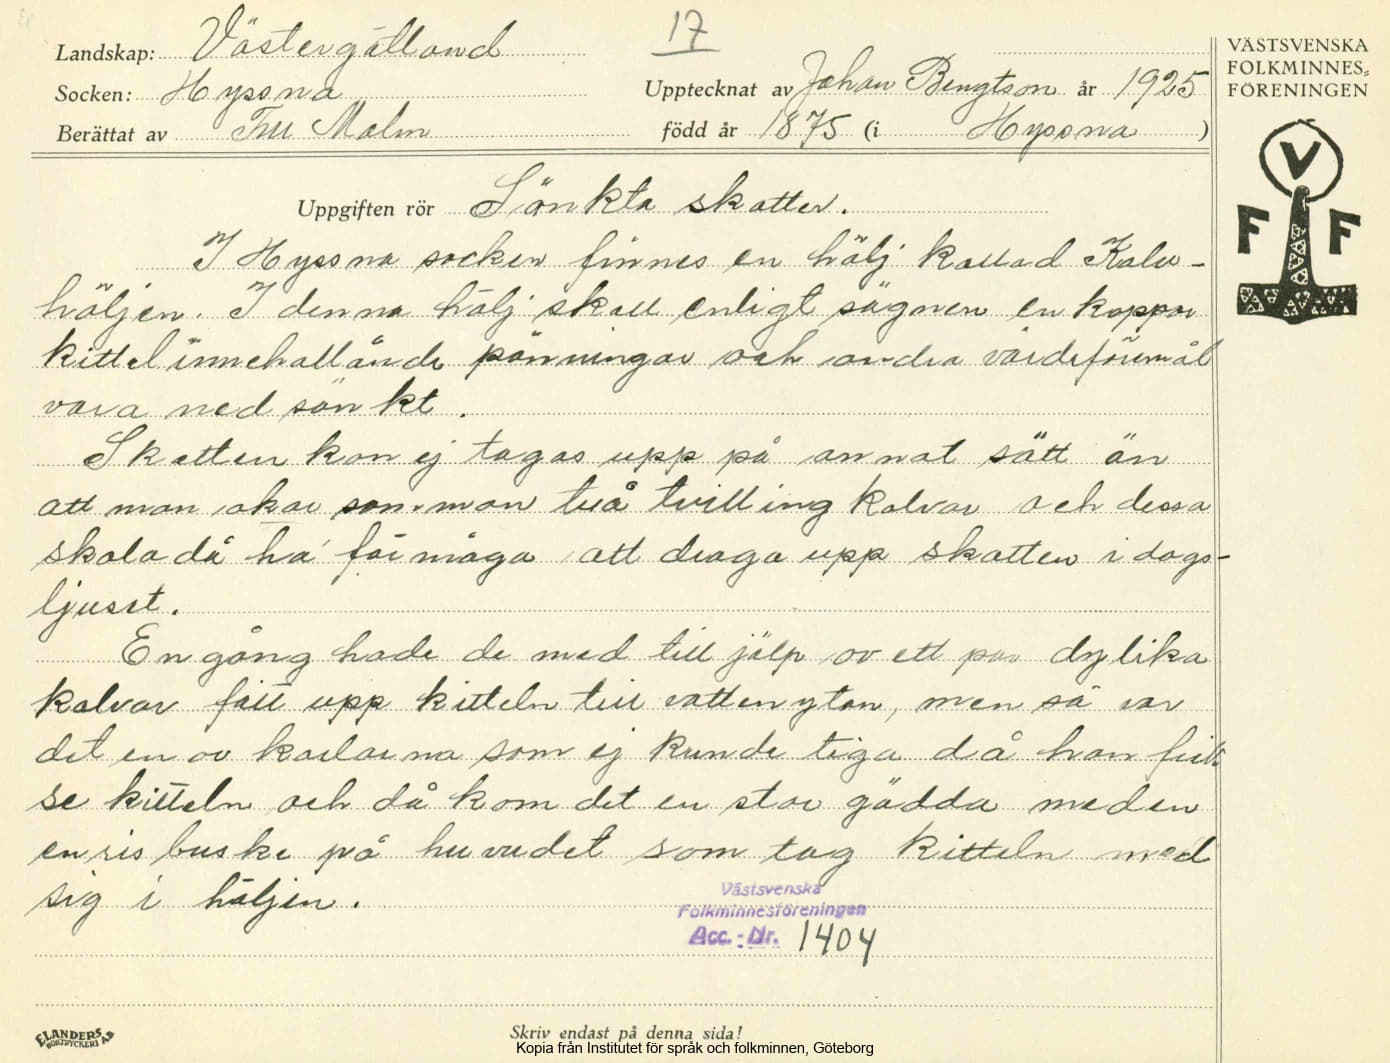 17
Landskap: Västergötland
VÄSTSVENSKA
FOLKMINNES-
FÖRENINGEN
Socken: Hyssna
Upptecknat av Johan Bengtson år 1925
Berättat av Malm
född år 1875 (i Hyssna )
V
F F
Uppgiften rör Sönkta skatter.
I Hyssna socken finnes en hälj kallad Kalv-
häljen. I denna hälj skall enligt sägnen en koppar
kittel innehallände pänningar och andra värdeförmål
vara ned sänkt.
Skatten kan ej tagas upp på annat sätt än
att man akar man två tvilling kalvar och dessa
skola då ha förmåga att draga upp skatten i dags-
ljuset.
En gång hade de med till jälp av ett par dylika
kalvar fått upp kitteln till vattenytan, men så var
det en av karlarna som ej kunde tiga då han fick
se kitteln och då kom det en stor gädda med en
enrisbuske på huvudet som tog kitteln med
sig i häljen.
Västsvenska
Folkminnesföreningen
Acc.-Nr. 1404
ELANDERS
BOKTRYCKERI AB
Skriv endast på denna sida!
Kopia från Institutet för språk och folkminnen, Göteborg